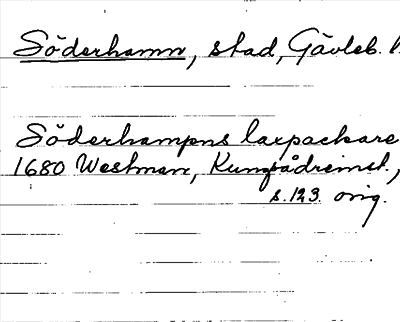 Söderhamn, stad, Gävleb. l
Söderhampns laxpackare
1680 Westman, Kungsådreinst.,
s. 123. orig.